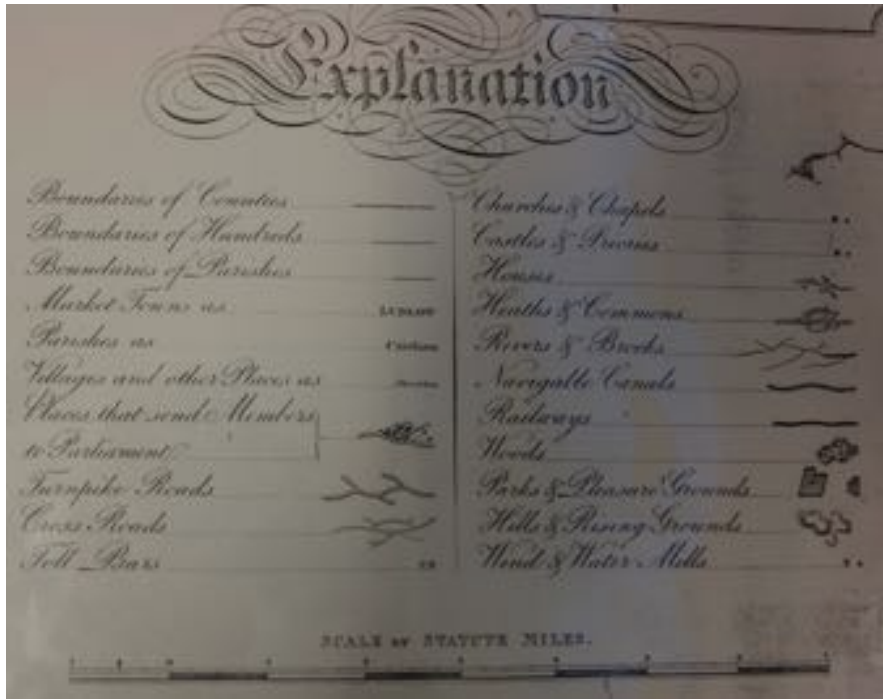 Explanation
Boundaries of Counties
Boundaries of Hundreds
Boundaries of Parishes
Market Towns as LUDLOW
Parishes as
Villages and other Places as
Places that send Members
to Parliament
Turnpike Roads
Cross Roads
Toll Bars
Churches & Chapels
Castles & Priories
Houses
Heaths & Commons
Rivers & Brooks
Navigable Canals
Railways
Woods
Parks & Pleasure Grounds
Hills & Rising Grounds
Wind & Water Mills
SCALE of STATUTE MILES.